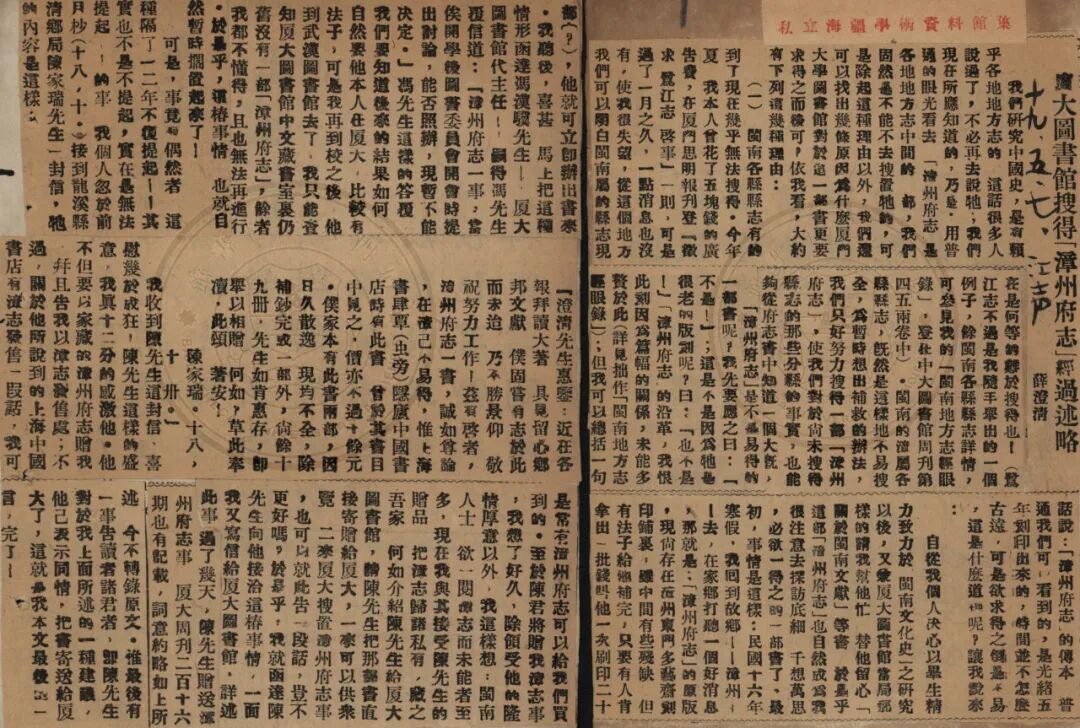 私立海疆學術資料館集
十九、五、七、江声
廈大圖書館搜得「漳州府志」經過述略
薛澄清
我們研究中國史，是有賴
乎各地地方志的，這話很多人
說過了，不必再去說牠；我們
現在所應知道的，乃是，用普
通的眼光看去，「漳州府志」是
各地地方志中間的一部，我們
固然是不能不去搜置牠的，可
是除起這種理由以外，我們還
可以找出幾條原因為什麼廈門
大學圖書館對於這一部書更要
求得之而後可，依我看，大約
有下列這幾種理由：
（一）閩南各縣縣志有的
到了現在幾乎無法搜得。今年
夏，我本人曾花了五塊錢的廣
告費，在廈門思明報刊登「徵
求鷺江志啓事」一則，可是
過了一月之久，一點消息也沒
有，使我很失望，從這個地方
我們可以明白閩南屬的縣志現
在是何等的難於搜得也！（鷺
江志不過是我隨手舉出的一個
例子，餘閩南各縣縣志詳情，
可參見我的「閩南地方志經眼
錄」，登在中大圖書館周刊第
四五兩卷中）。閩南的漳屬各
縣縣志，既然是這樣地不易搜
全，為暫時想出補救的辦法，
我們只好努力搜得一部「漳州
府志」，使我們對於尚未搜得
縣志的那些分縣的事實，也能
夠從府志書中知道一個大概，
「漳州府志」是不易得的
一部書呢？我先要應之曰：「
不是！」；這是不是因為牠是
很老的版刻呢？曰：「也不是
！」「漳州府志」的沿革，我恨
此刻因為篇幅的關係，未能多
贅於此（詳見拙作「閩南地方志
經眼錄」；但我可以總括一句
話說：「漳州府志」的傳本，普
通我們可以看到的，是光緒五
年刻印出來的，時間並不怎麼
古遠，可是欲求得之倒是不易
，這是什麼道理呢？讓我說來
自從我個人決心以畢生精
力致力於「閩南文化史」之研究
以後，又兼廈大圖書館當局那
樣的請我幫他忙，替他留心「
關於閩南文獻」等書，於是乎
這部「漳州府志」也自然成為我
很注意去探訪底細，千想萬思
，必欲一得之的一部書了。最
初，事情是這樣：民國十六年
寒假，我回到故鄉——漳州—
—去，在家鄉打聽一個好消息
，那就是：「漳州府志」的原版
，現尚存在漳州東門多藝齋刻
印鋪裏，雖中間有些殘缺，但
有法子給他補完，只要有人肯
拿出一批錢叫他一次刷印二十
部（？），他就可立卽辦出書來
。我聽後，喜甚，馬上把這種
情形函達馮漢驥先生——廈大
圖書館代主任——嗣得馮先生
覆信道：「漳州府志一事，當
俟開學後圖書委員會開會時提
出討論，能否照辦，現暫不能
決定。」馮先生這樣的答覆，
我們要知道後來的結果如何，
自然要他本人在廈大，比較有
法子，可是我再到校之後，他
到武漢圖書館去了，我只能查
知厦大圖書館中文藏書室裏仍
舊沒有一部「漳州府志」，餘者
我都不懂得，且也無法再進行
。於是乎，這樁事情，也就自
然暫時擱置起來了！
可是，事竟有偶然者，這
種隔了一二年不復提起——其
實也不是不提起，實在是無法
提起——的事，我個人忽於前
月抄（十八，十）接到龍溪縣
清鄉局陳家瑞先生一封信，牠
的內容是這樣：
「澄清先生惠鑒：近在各
報拜讀大著，具見留心鄉
邦文獻，僕固嘗有志於此
而未逮，乃不勝景仰，敬
祝努力工作！茲有啓者，
漳州府志一書，誠如尊論
，在漳已不易得，惟上海
書肆草（虫旁）隱廬中國書
店時有此書，曾於其書目
中見之，價亦不過十餘元
。僕家本有此書兩部，因
日久散逸，現均不全，除
補鈔完成一部外，尚餘十
九冊，先生如肯惠存，卽
舉以相贈，何如，草此奉
瀆，此頌著安！
陳家瑞。十八，
十卅。」
我收到陳先生這封信，喜
慰幾於成狂，陳先生這樣的盛
意，我眞十二分的感激他。他
不但要以家藏的漳州府志贈我
，幷且告我以漳志發售處；不
過，關於他所說到的上海中國
書店有漳志發售一段話，我可
是常有漳州府志可以給我們買
到的。至於陳君將贈我漳志事
，我想了好久，除領受他的隆
情厚意以外，我這樣想：閩南
人士，欲一閱漳志而未能者至
多，現在我與其接受陳先生的
贈品，把漳志歸諸私有，藏之
吾家，何如介紹陳先生給廈大
圖書館，請陳先生把那部書直
接寄贈給廈大，一來可以供衆
覽，二來廈大搜置漳州府志事
，也可以就此告一段話，豈不
更好嗎？於是乎，我就函達陳
先生向他接洽這樁事情，一面
我又寫信給厦大圖書館，詳述
此事，過了幾天，陳先生贈送漳
州府志事，厦大周刊二百十六
期也有記載，詞意約略如上所
述，今不轉錄原文。惟最後有
一事告讀者諸君者，卽陳先生
對於我上面所述的一種建議，
他已表示同情，把書寄送給厦
大了，這就是我本文最後的一
言，完了！